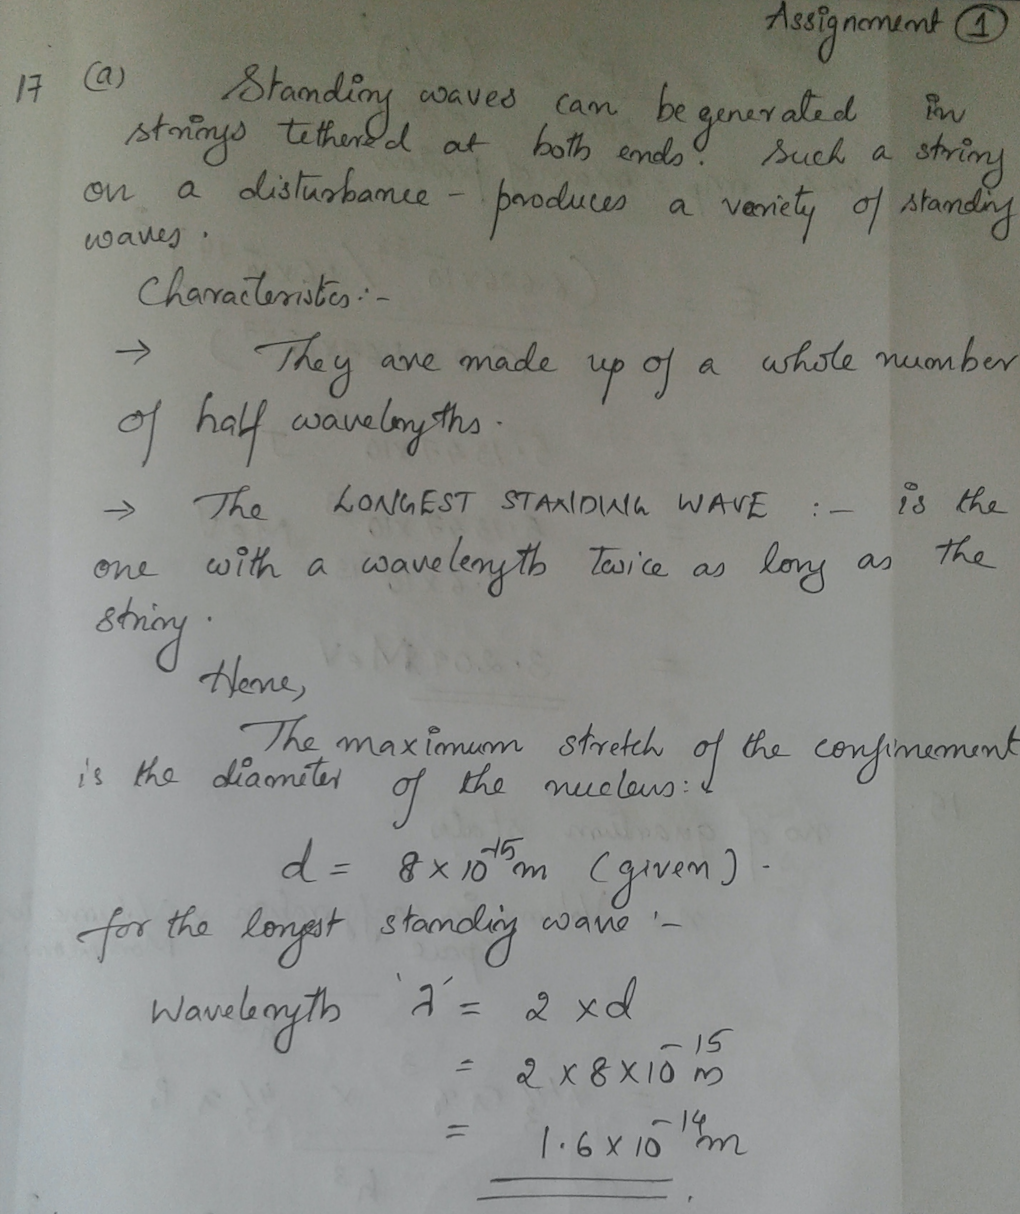 Assignment ①
17 (a) Standing waves can be generated in
strings tethered at both ends. Such a string
on a disturbance - produces a variety of standing
waves.
Characteristics:-
→ They are made up of a whole number
of half wavelengths.
→ The LONGEST STANDING WAVE :- is the
one with a wavelength twice as long as the
string.
Here,
The maximum stretch of the confinement
is the diameter of the nucleus:↓
d = 8 × 10⁻¹⁵ m (given).
for the longest standing wave :-
Wavelength 'λ' = 2 × d
= 2 × 8 × 10⁻¹⁵ m
= 1.6 × 10⁻¹⁴ m